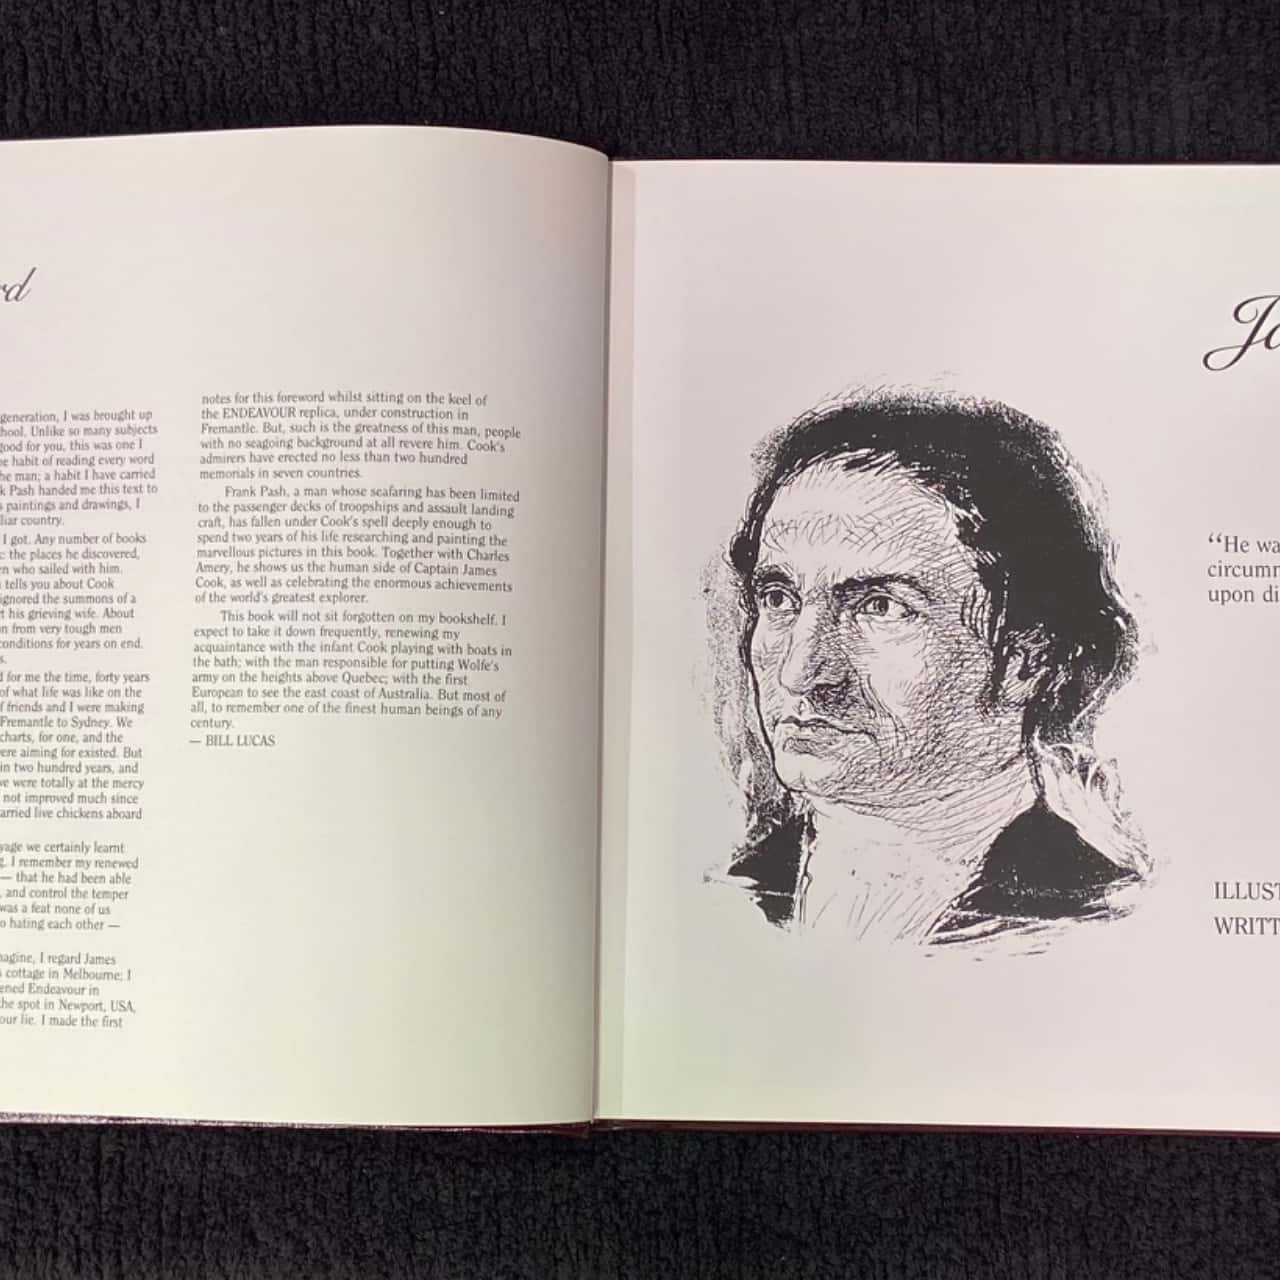 rd
generation, I was brought up
hool. Unlike so many subjects
good for you, this was one I
e habit of reading every word
he man; a habit I have carried
k Pash handed me this text to
s paintings and drawings, I
liar country.
I got. Any number of books
: the places he discovered,
n who sailed with him.
tells you about Cook
ignored the summons of a
t his grieving wife. About
n from very tough men
conditions for years on end.
s.
d for me the time, forty years
of what life was like on the
f friends and I were making
Fremantle to Sydney. We
charts, for one, and the
ere aiming for existed. But
in two hundred years, and
ve were totally at the mercy
not improved much since
arried live chickens aboard
yage we certainly learnt
g. I remember my renewed
— that he had been able
, and control the temper
was a feat none of us
o hating each other —
nagine, I regard James
s cottage in Melbourne; I
ened Endeavour in
the spot in Newport, USA,
our lie. I made the first
notes for this foreword whilst sitting on the keel of
the ENDEAVOUR replica, under construction in
Fremantle. But, such is the greatness of this man, people
with no seagoing background at all revere him. Cook's
admirers have erected no less than two hundred
memorials in seven countries.
Frank Pash, a man whose seafaring has been limited
to the passenger decks of troopships and assault landing
craft, has fallen under Cook's spell deeply enough to
spend two years of his life researching and painting the
marvellous pictures in this book. Together with Charles
Amery, he shows us the human side of Captain James
Cook, as well as celebrating the enormous achievements
of the world's greatest explorer.
This book will not sit forgotten on my bookshelf. I
expect to take it down frequently, renewing my
acquaintance with the infant Cook playing with boats in
the bath; with the man responsible for putting Wolfe's
army on the heights above Quebec; with the first
European to see the east coast of Australia. But most of
all, to remember one of the finest human beings of any
century.
— BILL LUCAS
Ja
“He wa
circumn
upon di
ILLUST
WRITT